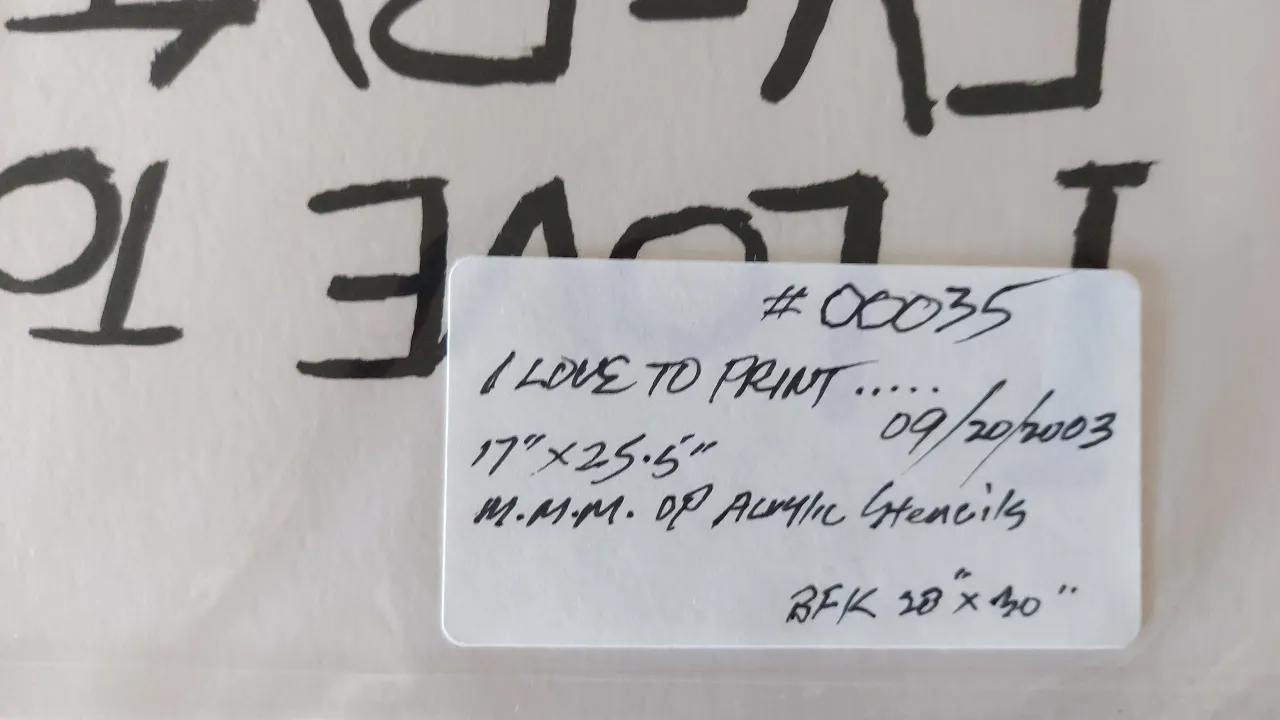 I LOVE TO
#00035
I LOVE TO PRINT.....
09/20/2003
17"x25.5"
M.M.M. OP Acrylic Stencils
BFK 28"x30"